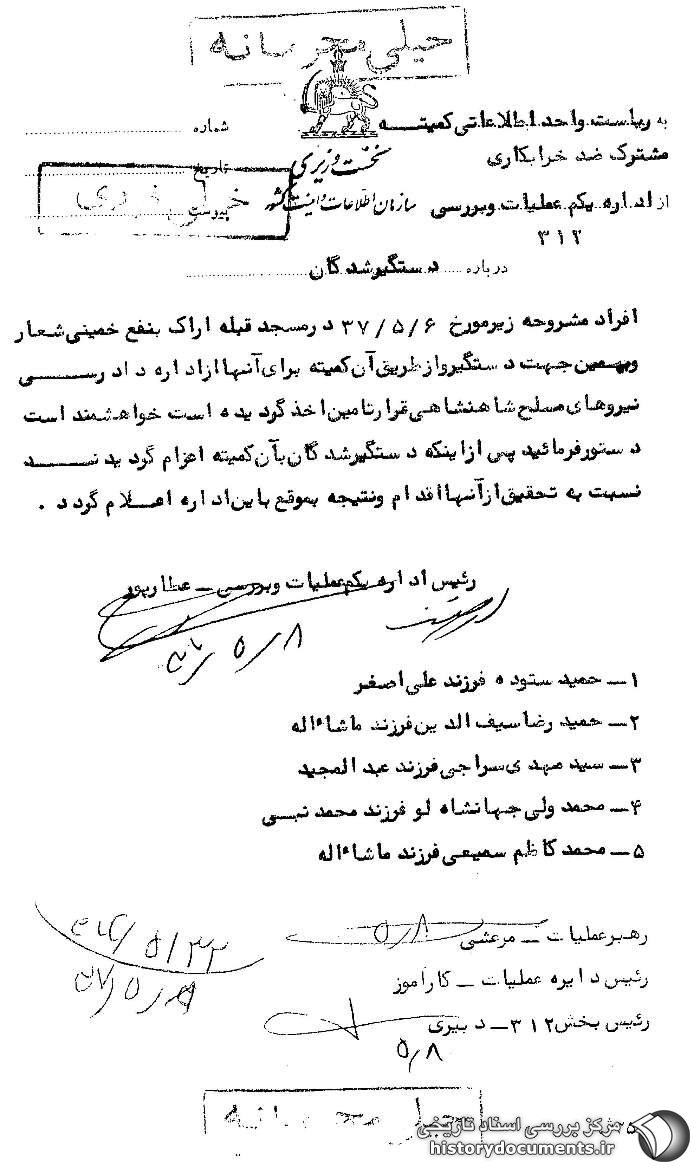 خیلی محرمانه
به ریاست واحد اطلاعاتی کمیته
مشترک ضد خرابکاری
از اداره یکم عملیات و بررسی
۳۱۲
نخست وزیری
سازمان اطلاعات و امنیت کشور
شماره
تاریخ
پیوست
خیلی فوری
درباره دستگیرشدگان
افراد مشروحه زیر مورخ ۳۷/۵/۶ در مسجد قبله اراک بنفع خمینی شعار
و بهمین جهت دستگیر و از طریق آن کمیته برای آنها از اداره دادرسی
نیروهای مسلح شاهنشاهی قرار تامین اخذ گردیده است خواهشمند است
دستور فرمائید پس از اینکه دستگیرشدگان بآن کمیته اعزام گردیدند
نسبت به تحقیق از آنها اقدام و نتیجه بموقع باین اداره اعلام گردد .
رئیس اداره یکم عملیات و بررسی – عطارپور
۵/۸
۱– حمید ستوده فرزند علی اصغر
۲– حمید رضا سیف الدین فرزند ماشاءاله
۳– سید مهدی سراجی فرزند عبدالمجید
۴– محمد ولی جهانشاه لو فرزند محمد نبی
۵– محمد کاظم سمیعی فرزند ماشاءاله
رهبر عملیات – مرعشی ۵/۸
رئیس دایره عملیات – کارآموز
رئیس بخش ۳۱۲– دبیری
۵/۸
خیلی محرمانه
مرکز بررسی اسناد تاریخی
historydocuments.ir